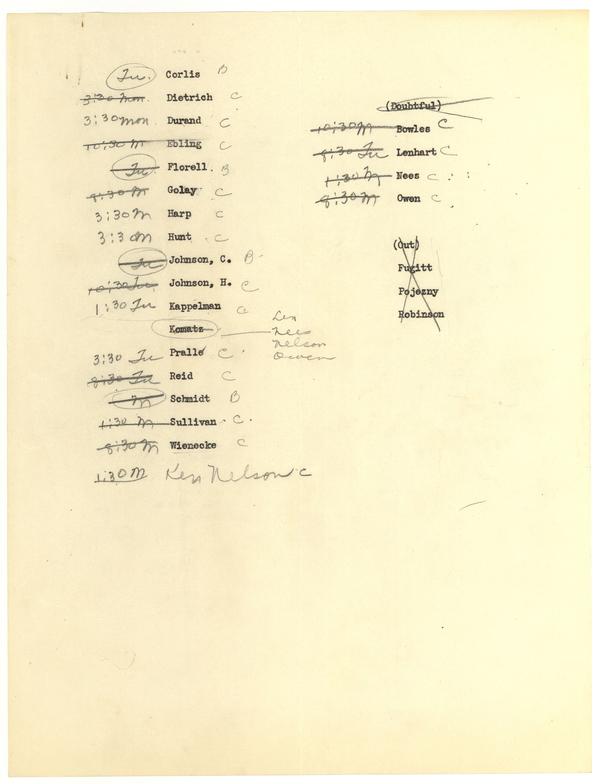 Tu. Corlis B
3:30 Mon. Dietrich C
3:30 mon. Durand C
10:30 M Ebling C
Tu Florell B
8:30 M Golay C
3:30 M Harp C
3:30 M Hunt C
Tu Johnson, C. B
10:30 Tu Johnson, H. C
1:30 Tu Kappelman C
Komatz
Len
Nees
Nelson
Owen
3:30 Tu Pralle C
8:30 Tu Reid C
M Schmidt B
1:30 M Sullivan C
8:30 M Wienecke C
1:30 M Ken Nelson C
(Doubtful)
10:30 M Bowles C
8:30 Tu Lenhart C
1:30 M Nees C
8:30 M Owen C
(Out)
Fugitt
Pojezny
Robinson